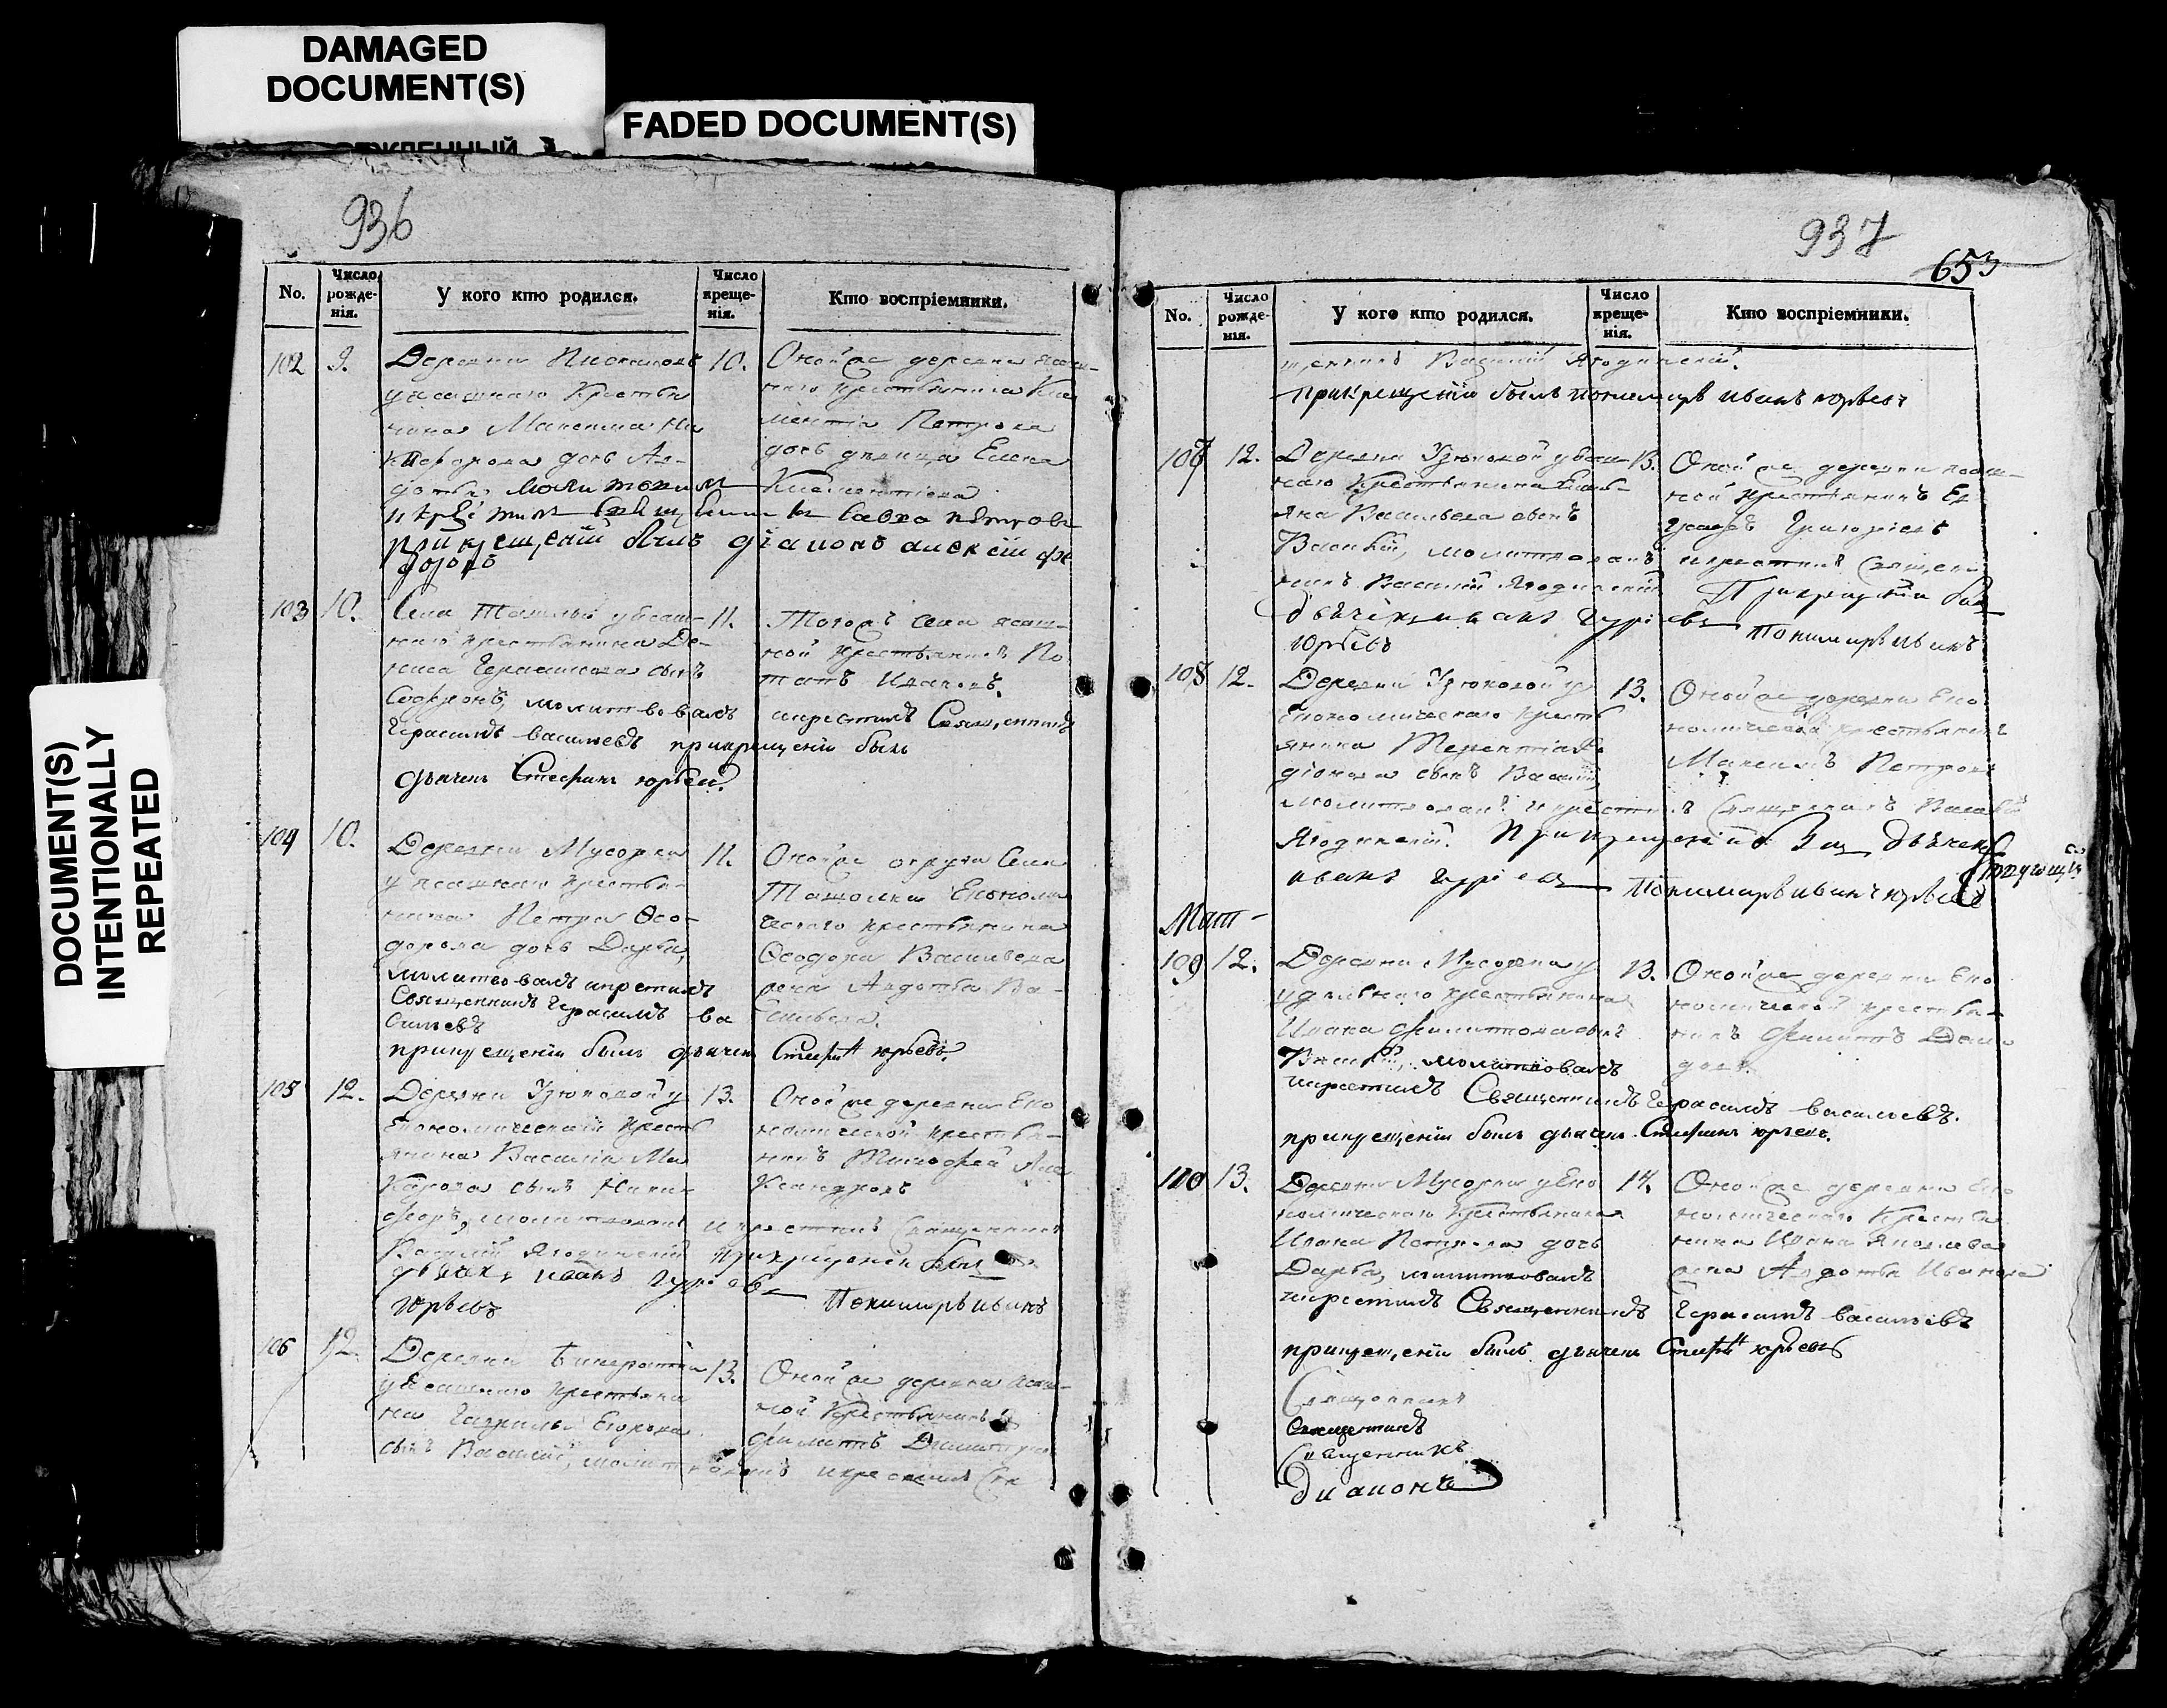 DAMAGED
DOCUMENT(S)
FADED DOCUMENT(S)
DOCUMENT(S)
INTENTIONALLY
REPEATED
936
No.
Число рожде-нія.
У кого кто родился.
Число креще-нія.
Кто воспріемники.
102 9.
Деревни
уясашнаго Крестья
нина Максима Ни
кифорова дочь Ав-
дотья, молитвовалъ
и крестилъ священникъ Савва петровъ
при крещеніи былъ діаконъ алексій фе
доровъ
10.
Оной же деревни ясаш-
наго крестьянина Кли
ментія Петрова
дочь девица Елена
Климентіева
103 10.
Села Ташолки уясаш-
наго крестьянина Де-
ниса Герасимова сынъ
Софронъ, молитвовалъ
Герасимъ васильевъ при крещеніи былъ
дьячекъ Стефанъ юрьевъ.
11.
Тогожъ села ясаш-
ной крестьянинъ По
тапъ Ивановъ.
и крестилъ Священникъ
104 10.
Деревни Мусорки
уясашнаго крестья-
нина Петра Ѳео-
дорова дочь Дарья,
молитвовалъ и крестилъ
Священникъ Герасимъ ва
сильевъ
при крещеніи былъ дьячекъ Стефанъ юрьевъ.
11.
Оной же округи Села
Ташолки Економи
ческаго крестьянина
Ѳеодора Васильева
жена Авдотья Ва-
сильева.
105 12.
Деревни Узюковой у
Економическаго Кресть
янина Василія Ма
карова сынъ Ники
форъ, молитвовалъ и крестилъ Священникъ
Василій Ягодинской при крещеніи былъ
дьячекъ иванъ гурьевъ
Понамарь иванъ
юрьевъ
13.
Оной же деревни Еко
номической крестья-
нинъ Тимофей Але
ксандровъ
106 12.
Деревни
уясашнаго крестьяни
на Гаврилы Егорова
сынъ Василій, молитвовалъ и крестилъ Свя
13.
Оной же деревни ясаш-
ной Крестьянинъ
Филипъ
937
653
No.
Число рожде-нія.
У кого кто родился.
Число креще-нія.
Кто воспріемники.
щенникъ Василій Ягодинской.
при крещеніи былъ понамарь иванъ юрьевъ
107 12.
Деревни Узюковой уясаш-
наго Крестьянина Емель-
яна Васильева сынъ
Василій, молитвовалъ и крестилъ Священ
никъ Василій Ягодинской При крещеніи был
дьячекъ иванъ гурьевъ Понамарь иванъ
юрьевъ
13.
Оной же деревни ясаш-
ной крестьянинъ
Григорьевъ
108 12.
Деревни Узюковой у
Економическаго Кресть
янина Терентія
сынъ Василій,
молитвовалъ и крестилъ Священникъ Василій
Ягодинской. При крещеніи были дьячекъ
иванъ гурьевъ Понамарь иванъ юрьевъ
13.
Оной же деревни Еко
номической крестьянинъ
Максимъ Петровъ
109 12.
Деревни Мусорки у
удельнаго крестьянина
Ивана Филиппова сынъ
Василій, молитвовалъ
и крестилъ Священникъ Герасимъ васильевъ.
при крещеніи былъ дьячекъ Стефанъ юрьевъ.
13.
Оной же деревни Еко
номической крестья-
нинъ Филиппъ
110 13.
Деревни Мусорки у Еко
номическаго Крестьянина
Ивана Петрова дочь
Дарья, молитвовалъ
и крестилъ Священникъ Герасимъ васильевъ
при крещеніи былъ дьячекъ Стефанъ юрьевъ
14.
Оной же деревни Еко
номическаго Крестья
нина Ивана Яковлева
жена Авдотья Иванова
Священникъ
Священникъ
Священникъ
Диаконъ